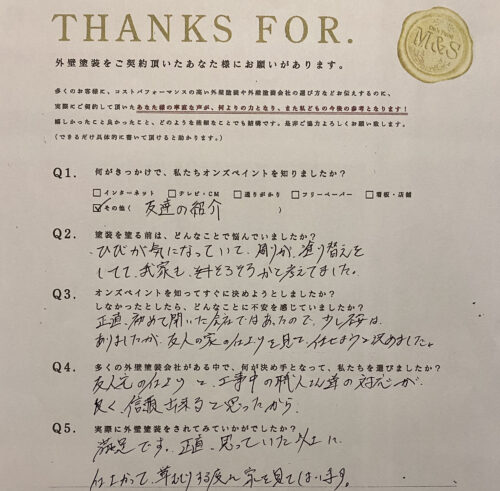 THANKS FOR.
M&S
外壁塗装をご契約頂いたあなた様にお願いがあります。
多くのお客様に、コストパフォーマンスの高い外壁塗装や外壁塗装会社の選び方などお伝えするのに、
実際にご契約して頂いたあなた様の率直な声が、何よりの力となり、また私どもの今後の参考となります！
嬉しかったこと良かったこと、どのような些細なことでも結構です。是非ご協力よろしくお願い致します。
（できるだけ具体的に書いて頂けると助かります。）
Q1. 何がきっかけで、私たちオンズペイントを知りましたか？
□インターネット □テレビ・CM □通りがかり □フリーペーパー □看板・店舗
☑その他（ 友達の紹介 ）
Q2. 塗装を塗る前は、どんなことで悩んでいましたか？
ひびが気になっていて、周りが、塗り替えを
してて、我家も、そろそろかと考えてました。
Q3. オンズペイントを知ってすぐに決めようとしましたか？
しなかったとしたら、どんなことに不安を感じていましたか？
正直、初めて聞いた会社ではあったので、少し不安は、
ありましたが、友人の家の仕上りを見て、任せようと決めました。
Q4. 多くの外壁塗装会社がある中で、何が決め手となって、私たちを選びましたか？
友人宅の仕上りと、工事中の職人さん等の対応が、
良く、信頼出来ると思ったから。
Q5. 実際に外壁塗装をされてみていかがでしたか？
満足です。正直、思っていた以上に
仕上がって、草むしりする度に家を見てしまいます。